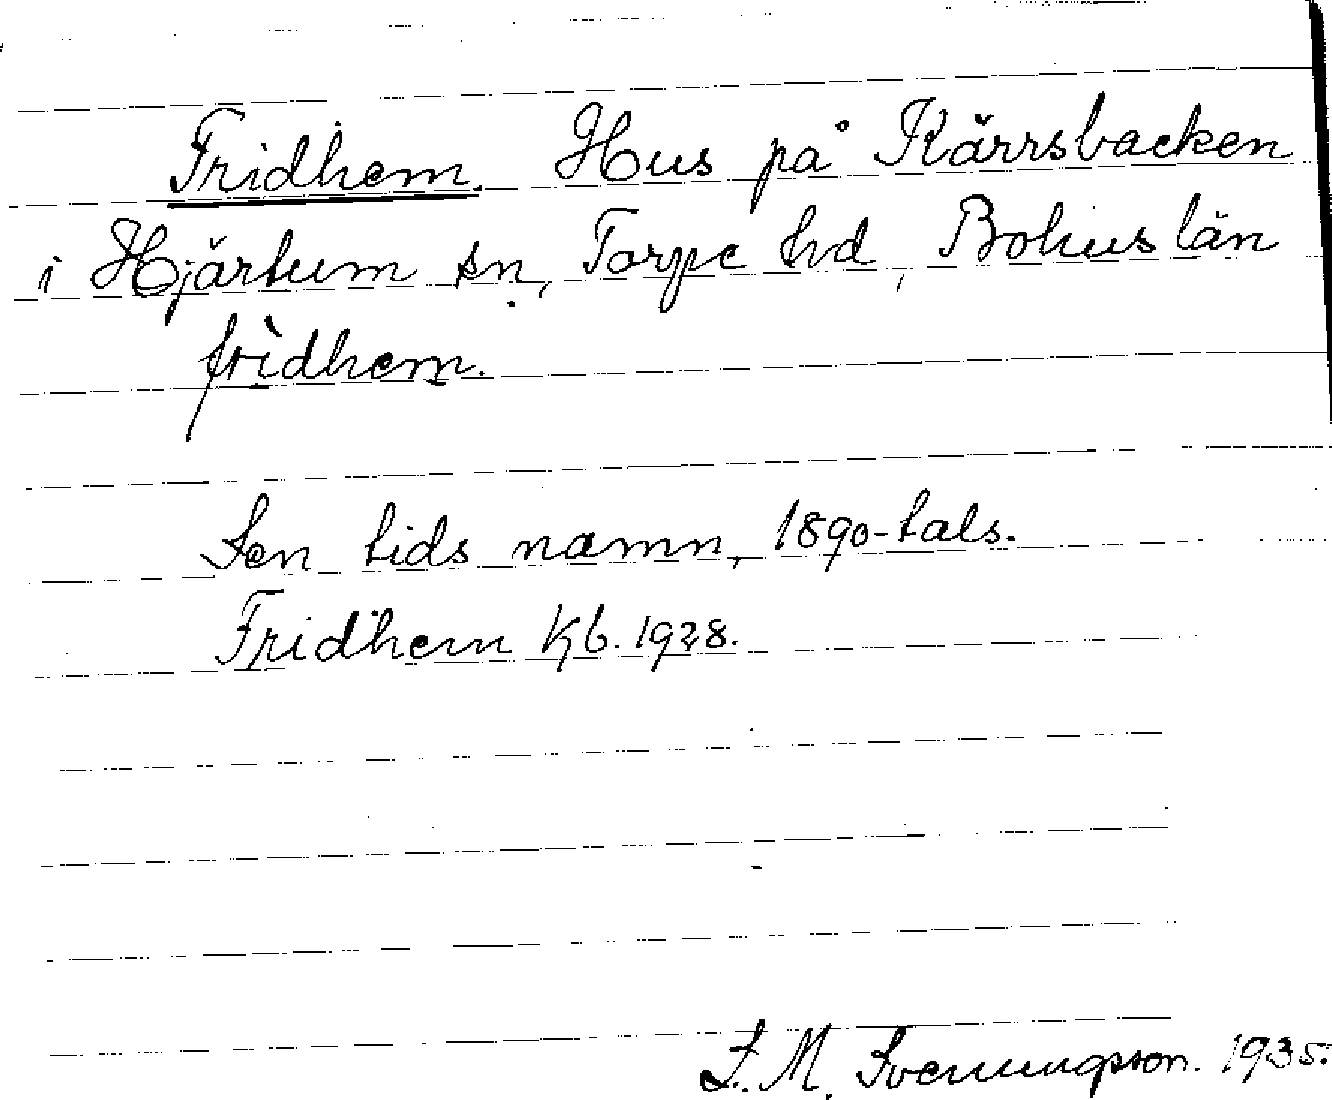 Fridhem. Hus på Kärrsbacken
i Hjärtum sn, Torpe hd, Bohuslän
frìdhem.
Sen tids namn, 1890-tals.
Fridhem Kb. 1928.
S. M. Svenungsson. 1935.